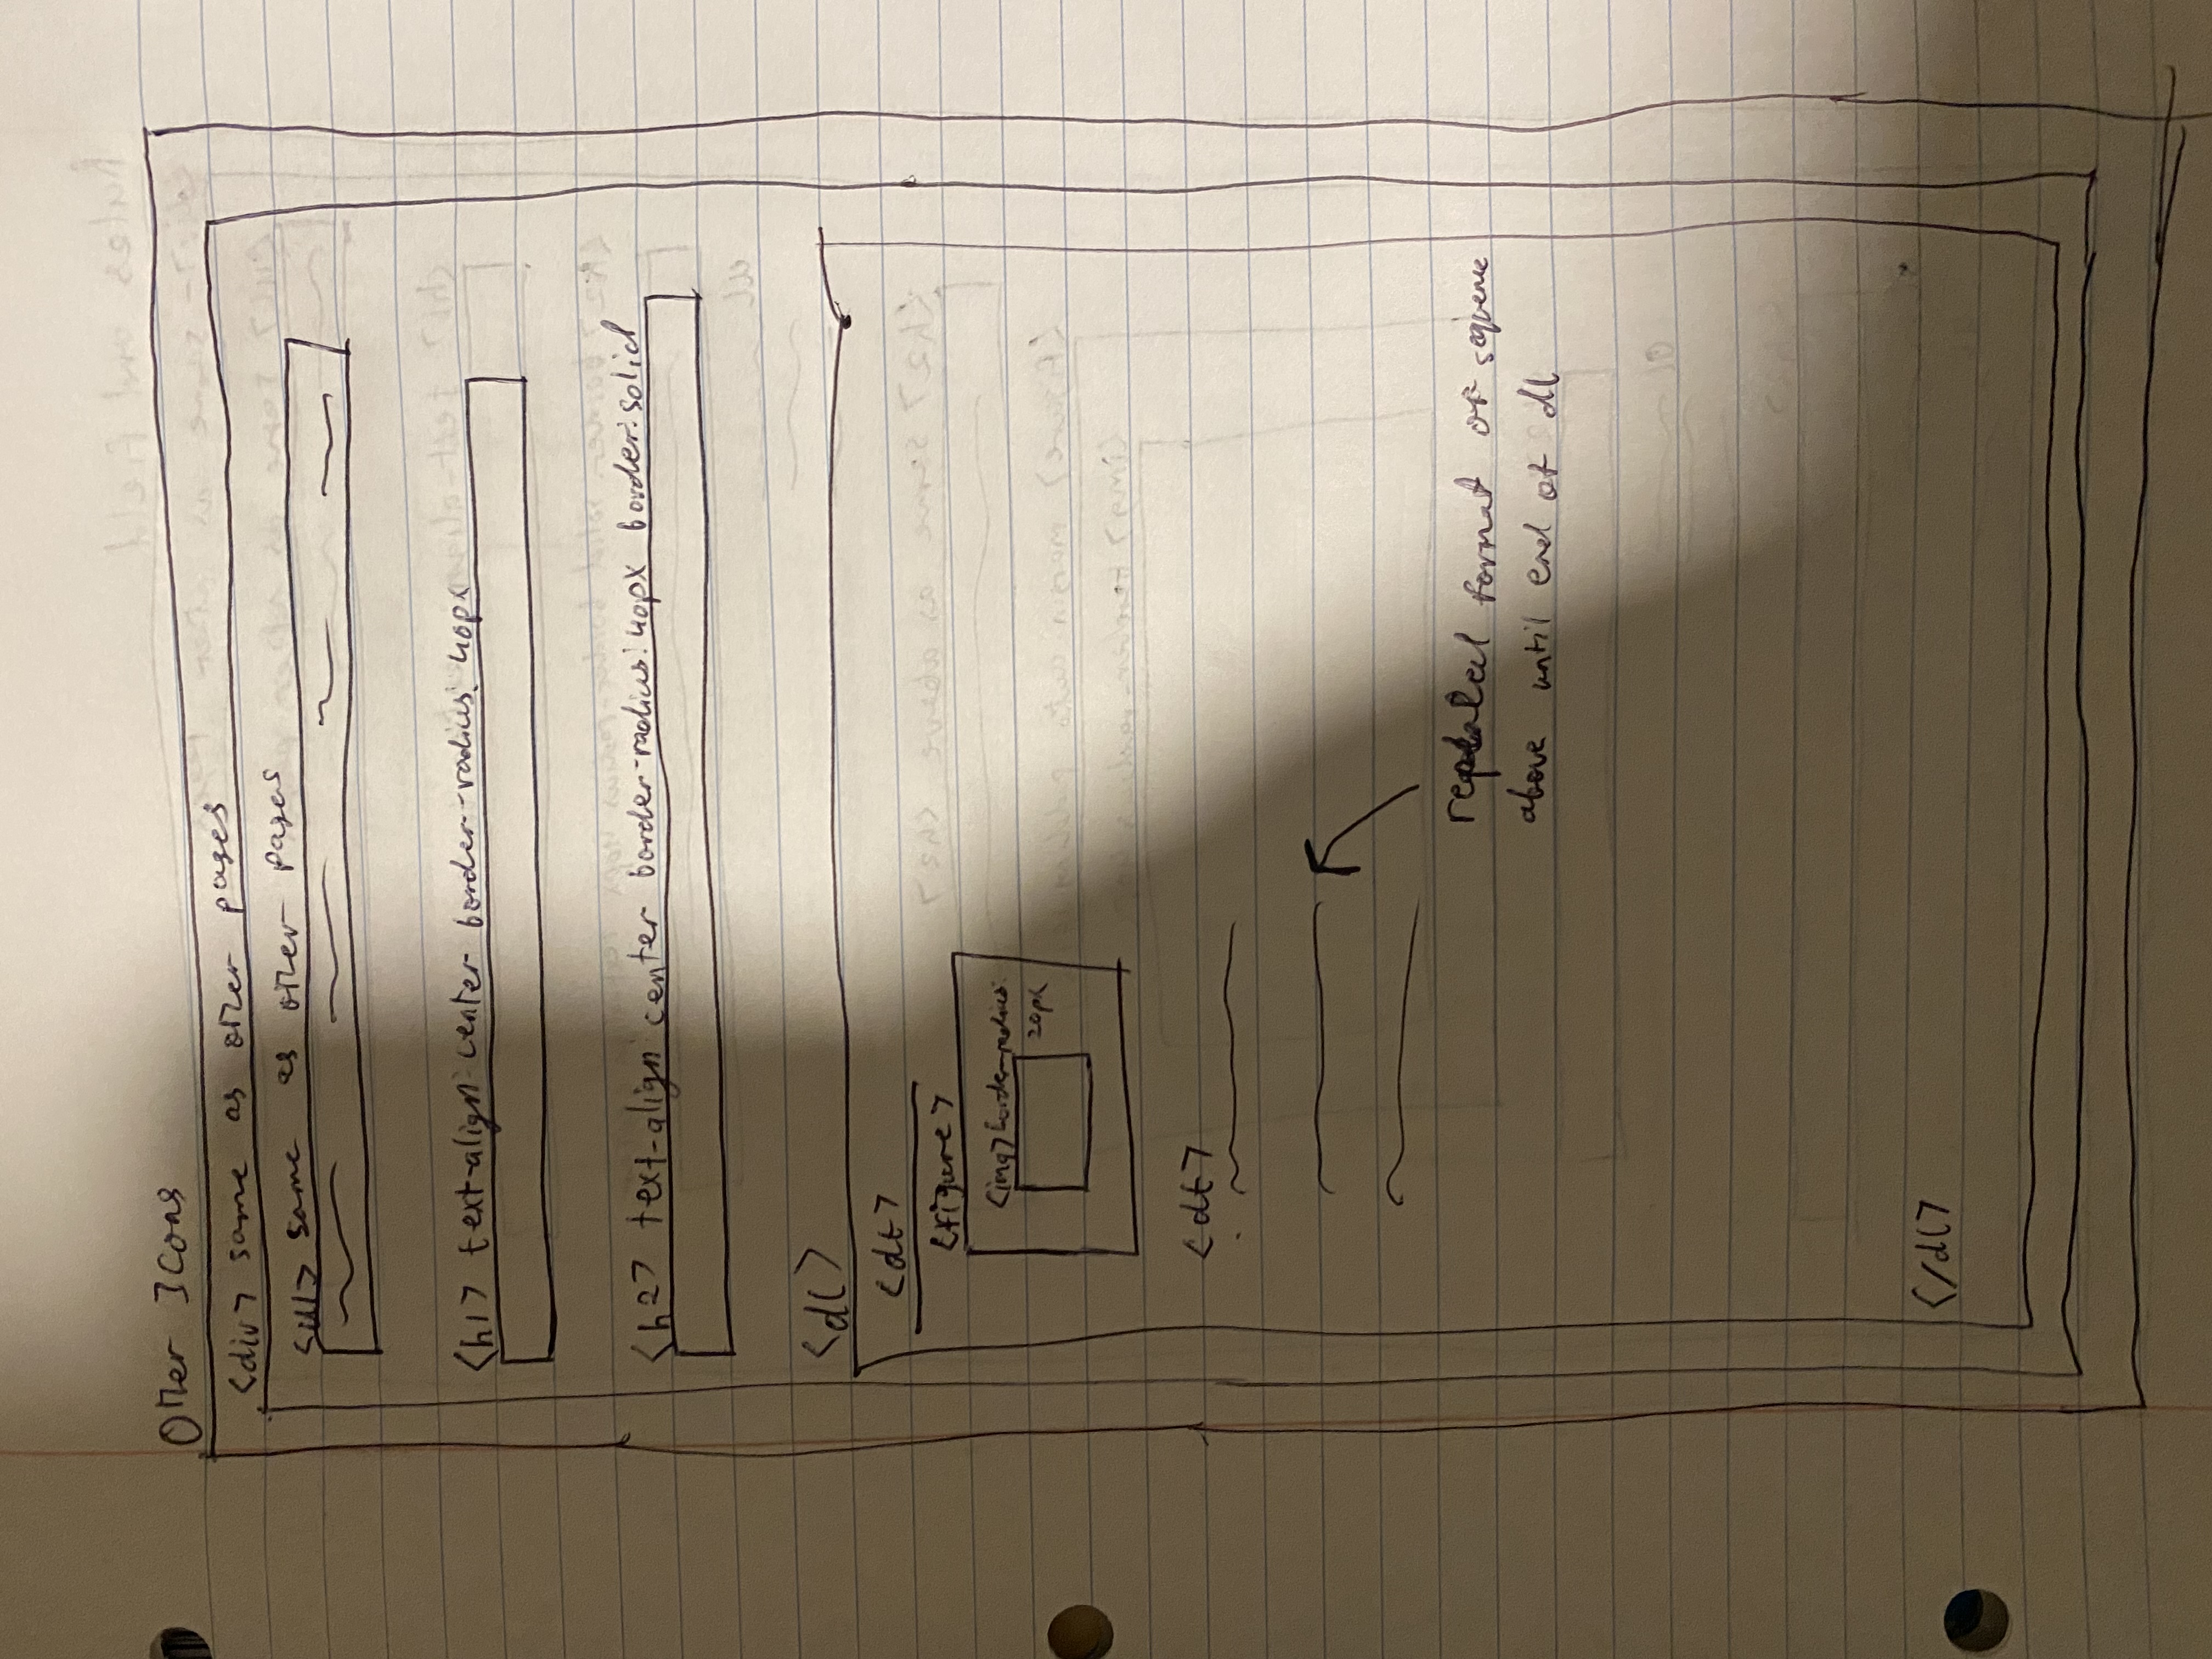 Other Icons
<div> same as other pages
<ul> same as other pages
<h1> text-align: center border-radius: 40px
<h2> text-align: center border-radius: 40px border: solid
<dl>
<dt>
<figure>
<img> border-radius:
20px
<dt>
repeated format of sequence
above until end of dl
</dl>